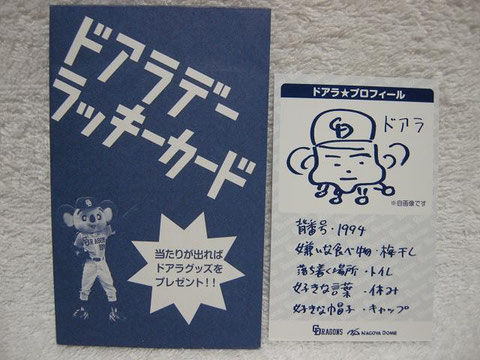 ドアラデー
ラッキーカード
当たりが出れば
ドアラグッズを
プレゼント!!
DRAGONS
ドアラ★プロフィール
CD
ドアラ
※自画像です
背番号・1994
嫌いな食べ物・梅干し
落ち着く場所・トイレ
好きな言葉・休み
好きな帽子・キャップ
DRAGONS NAGOYA DOME